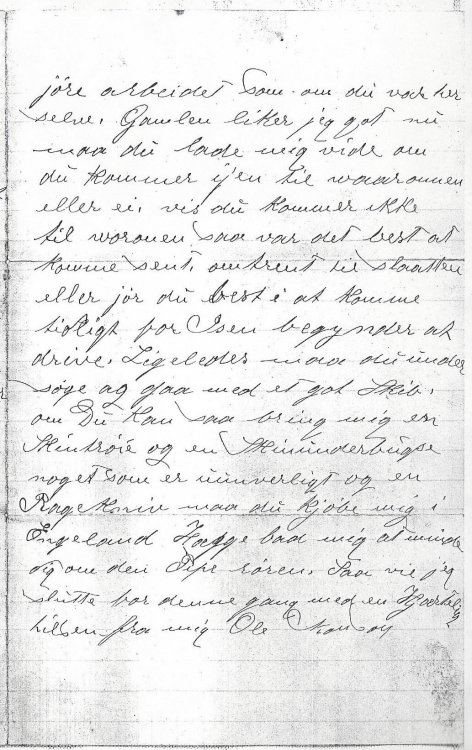 jöre arbeidet som om du var her
selve. Gamlen liker jeg got nu
maa du lade mig vide om
du kommer ijen til waaronnen
eller ei. vis du kommer ikke
til woronen saa var det best at
komme sent. omtrent til slaatten
eller jör du best i at komme
tidligt för Isen begynder at
drive. Ligeledes maa du under
söge at gaa med et got Skib.
om Du kan saa bring mig en
Skintröie og en Skinunderbugse
noget som er uunverligt og en
Ragekniv maa du kjöbe mig i
Engeland Hægge bad mig at minde
dig om den Pipe rören. Saa vil jeg
slutte for denne gang med en Hjærtelig
hilsen fra mig Ole